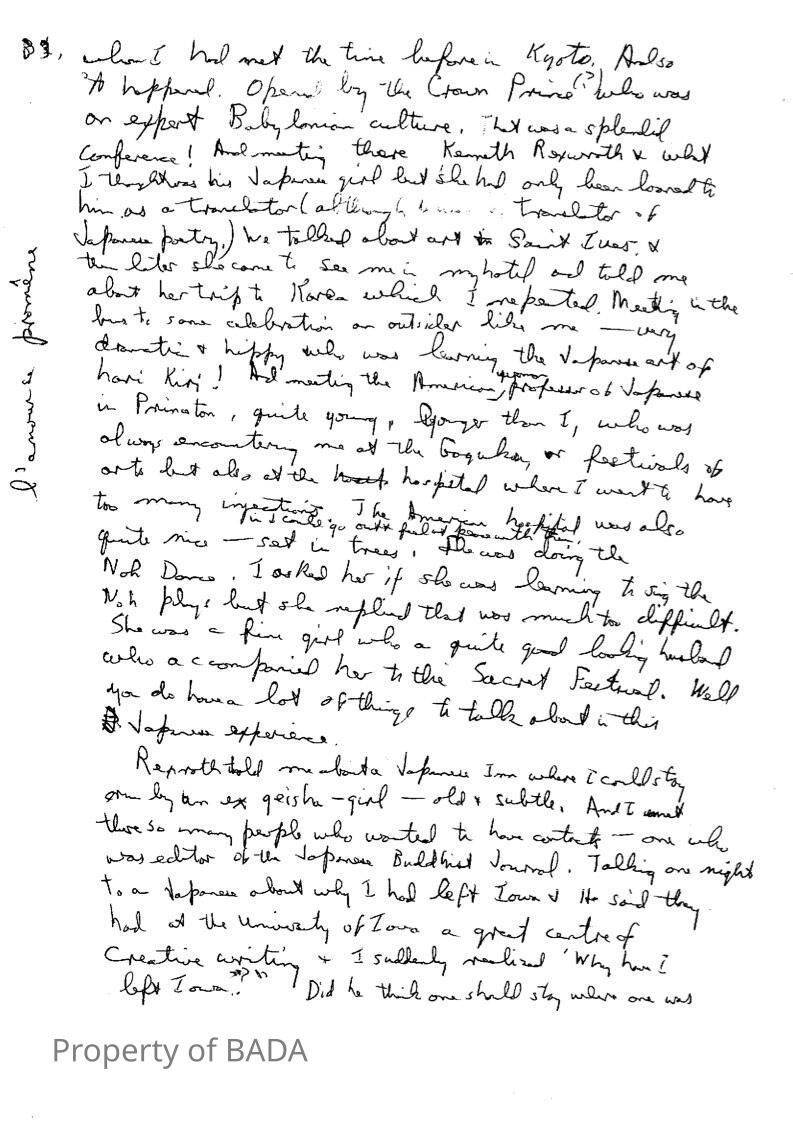 whom I had met the time before in Kyoto. Also
it happened. Opened by the Crown Prince (?) who was
an expert Babylonian culture. That was a splendid
Conference! And meeting there Kenneth Rexroth & what
I thought was his Japanese girl but she had only been loaned to
him as a translator (although translator of
Japanese poetry.) We talked about art in Saint Ives. &
then later she came to see me in my hotel and told me
about her trip to Korea which I repeated. Meeting in the
bus to some celebration an outsider like me — very
dramatic & hippy who was learning the Japanese art of
hari Kiri! And meeting the American, professor of Japanese
in Princeton, quite young, Younger than I, who was
always encountering me at the Gagaku, or festivals of
arts but also at the hospital where I went to have
too many injections. The American hospital was also
quite nice — set in trees. She was doing the
Noh Dance. I asked her if she was learning to sing the
Noh plays but she replied that was much too difficult.
She was a fine girl who a quite good looking husband
who accompanied her to the Sacred Festival. Well
you do have a lot of things to talk about in this
Japanese experience.
Rexroth told me about a Japanese Inn where I could stay
by an ex geisha-girl — old & subtle. And I met
there so many people who wanted to have contacts — one who
was editor of the Japanese Buddhist Journal. Talking one night
to a Japanese about why I had left Iowa & He said they
had at the University of Iowa a great centre of
Creative writing & I suddenly realized 'Why have I
left Iowa?" Did he think one should stay where one was
81.
Property of BADA